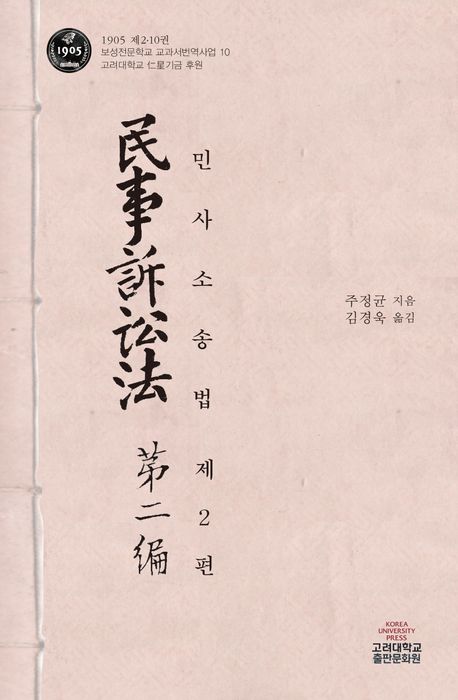 1905
1905 제2·10권
보성전문학교 교과서번역사업 10
고려대학교 仁星기금 후원
民事訴訟法 第二編
민사소송법 제2편
주정균 지음
김경욱 옮김
KOREA
UNIVERSITY
PRESS
고려대학교
출판문화원